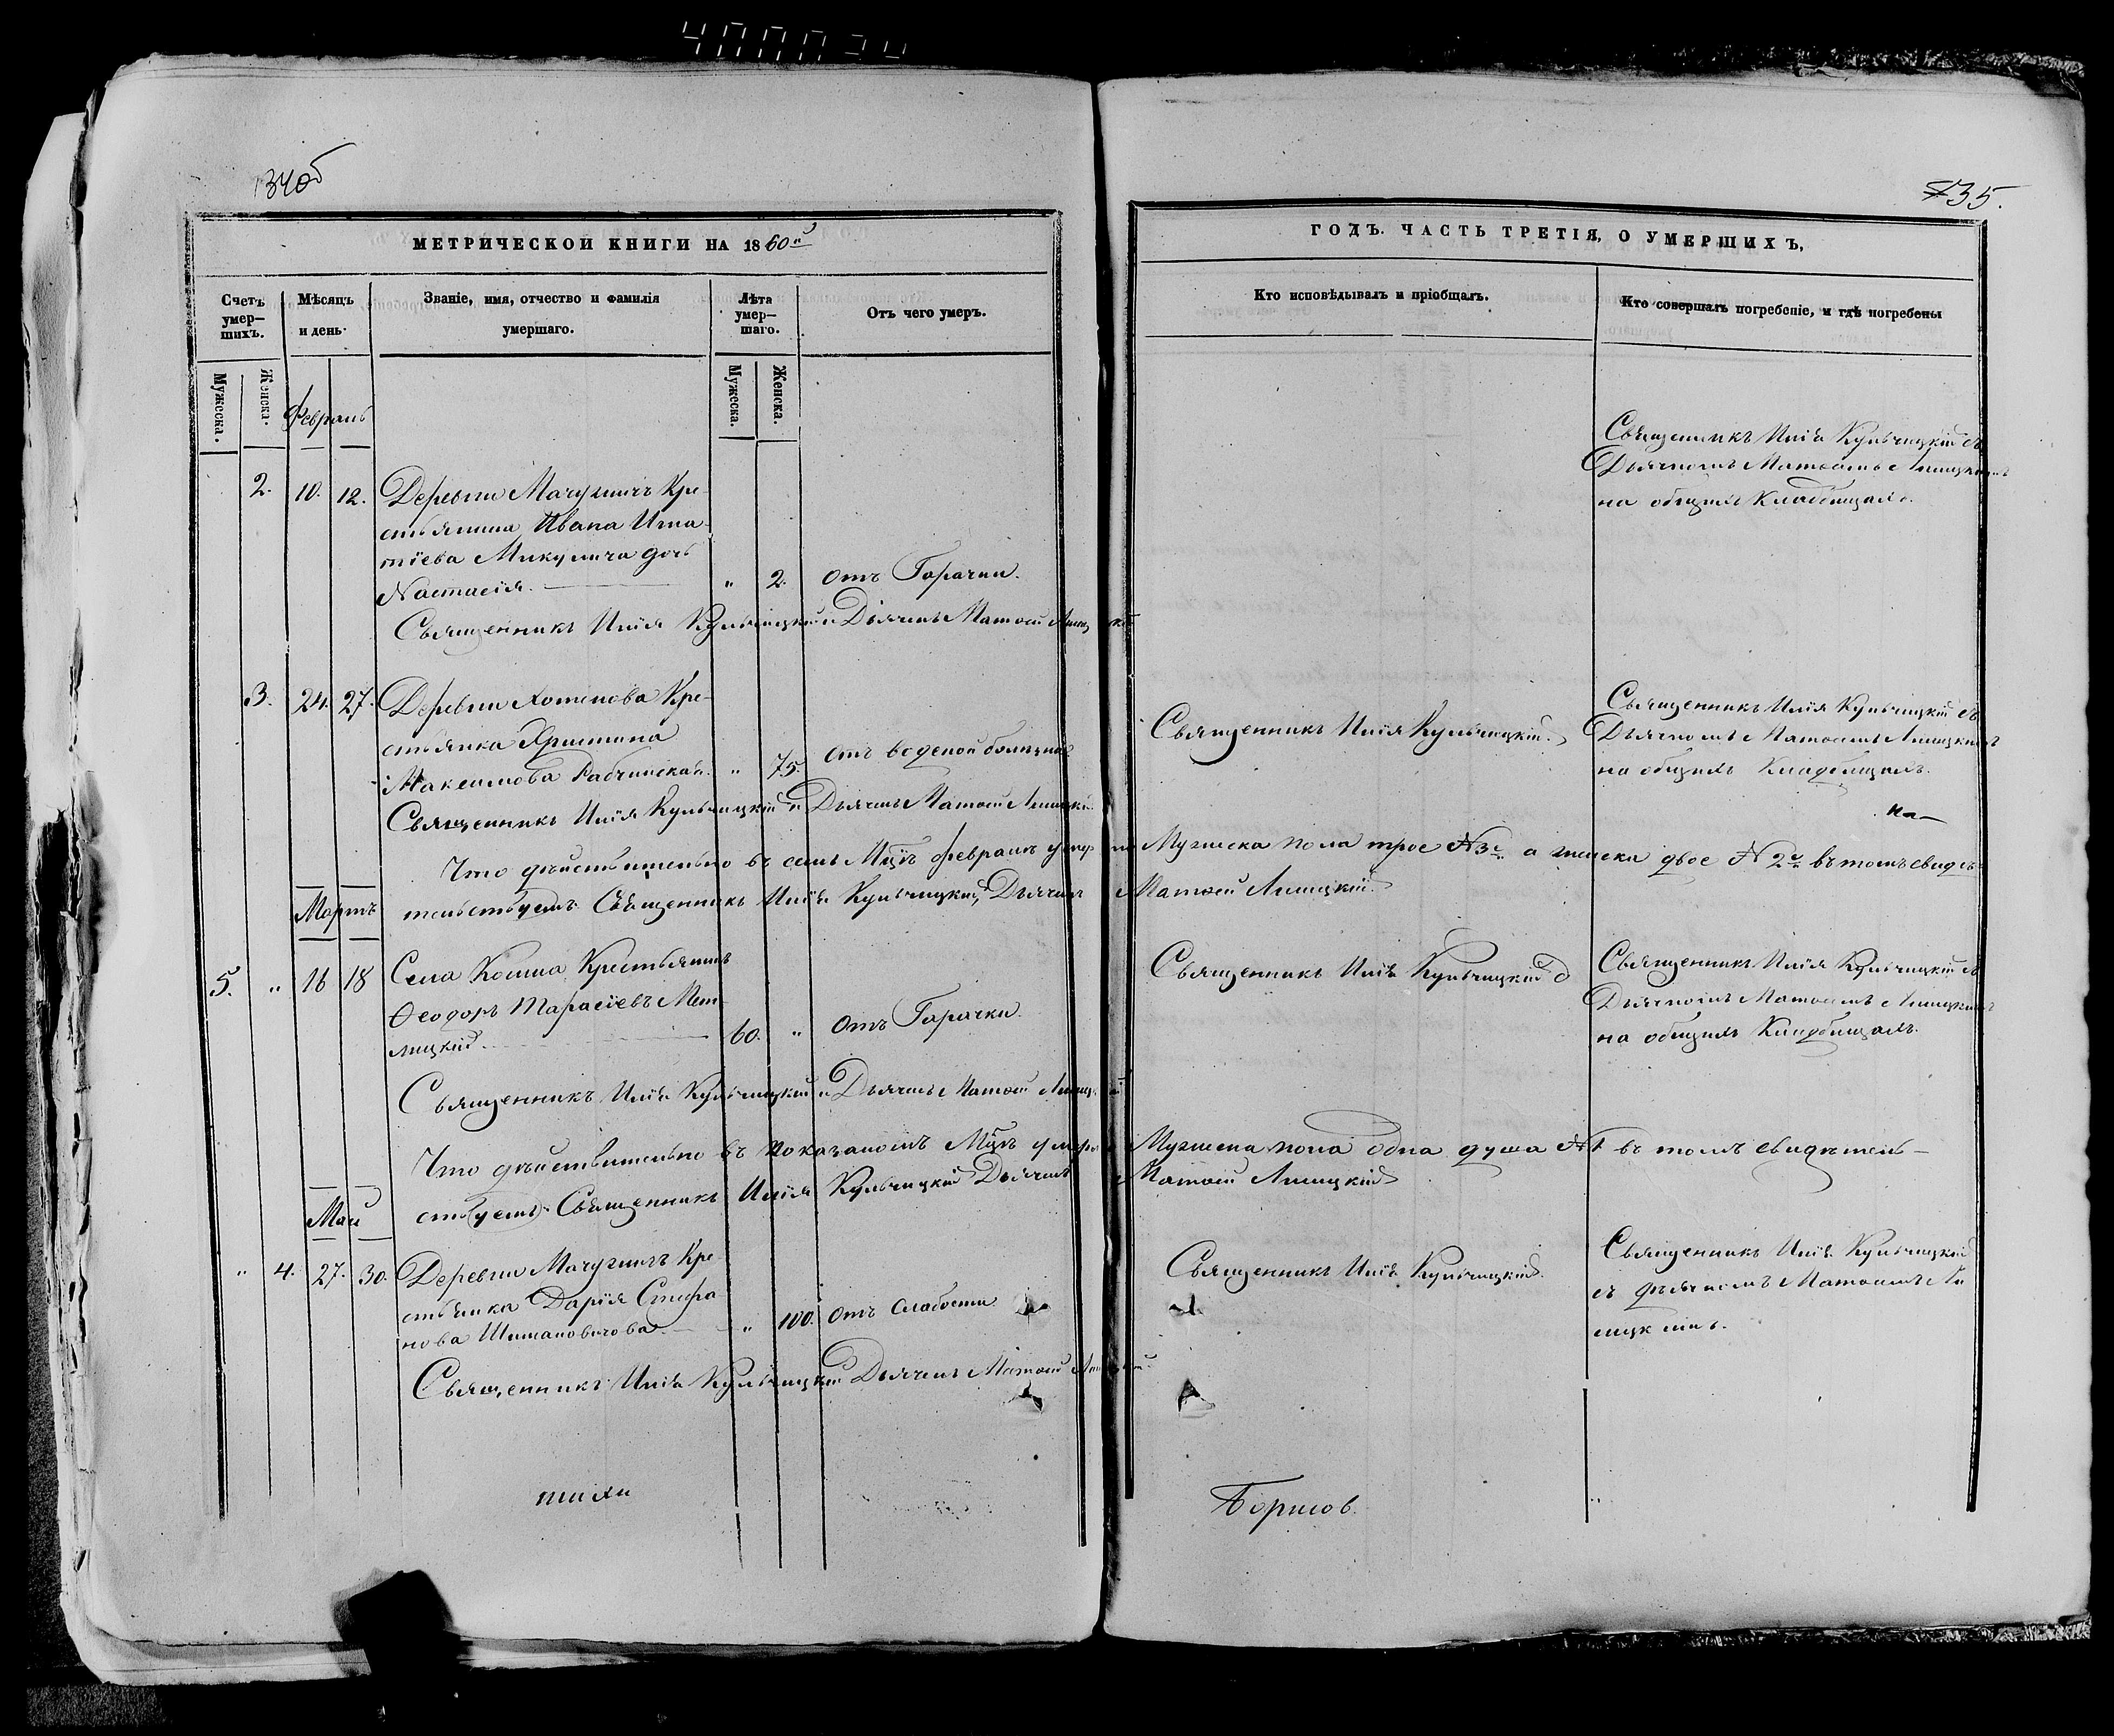 34об
35.
МЕТРИЧЕСКОЙ КНИГИ НА 1860й
ГОДЪ. ЧАСТЬ ТРЕТІЯ, О УМЕРШИХЪ,
Счетъ умер-шихъ.
Мѣсяцъ и день
Званіе, имя, отчество и фамилія умершаго.
Лѣта умер-шаго.
Отъ чего умеръ.
Кто исповѣдывалъ и пріобщалъ.
Кто совершалъ погребеніе, и гдѣ погребены
Мужеска.
Женска.
Мужеска.
Женска.
Февраль
2. 10. 12. Деревни Мачулищъ Кре-
стьянина Ивана Игна-
тіева Микулича дочь
Настасія. " 2. отъ Горячки.
Священникъ Илія Кульчицкій съ
Дьячкомъ Матѳемъ Лишцкимъ
на общихъ Кладбищахъ.
Священникъ Илія Кульчицкій и Дьячекъ Матѳей
3. 24. 27. Деревни Хотенова Кре-
стьянка Христина
Максимова Рабчинская. " 75. отъ воденой болезни
Священникъ Илія Кульчицкій.
Священникъ Илія Кульчицкій съ
Дьячкомъ Матѳемъ
на общихъ Кладбищахъ.
Священникъ Илія Кульчицкій и Дьячекъ Матѳей
Что дѣйствительно въ семъ Мцѣ Февралѣ умерло Мужеска пола трое №3 а женска двое №2 въ томъ свидѣ-
тельствуемъ Священникъ Илія Кульчицкій, Дьячекъ Матѳей
Мартъ
5. " 16 18 Села Кошна Крестьянинъ
Ѳеодоръ Тарасіевъ Мет
лицкій 60. " отъ Горячки
Священникъ Илія Кульчицкій
Священникъ Илія Кульчицкій съ
Дьячкомъ Матѳемъ
на общихъ Кладбищахъ.
Священникъ Илія Кульчицкій и Дьячекъ Матѳей
Что дѣйствительно въ показаномъ Мцѣ умерло Мужеска пола одна душа №1 въ томъ свидѣтель-
ствуемъ Священникъ Илія Кульчицкій Дьячекъ Матѳей
Май
" 4. 27. 30. Деревни Мачулищъ Кре
стьянка Дарія Стефа
нова Шимановичова " 100. отъ Слабости
Священникъ Илія Кульчицкій.
Священникъ Илія Кульчицкій
съ дьячкомъ Матѳемъ
Священникъ Илія Кульчицкій Дьячекъ Матѳей
Борисов